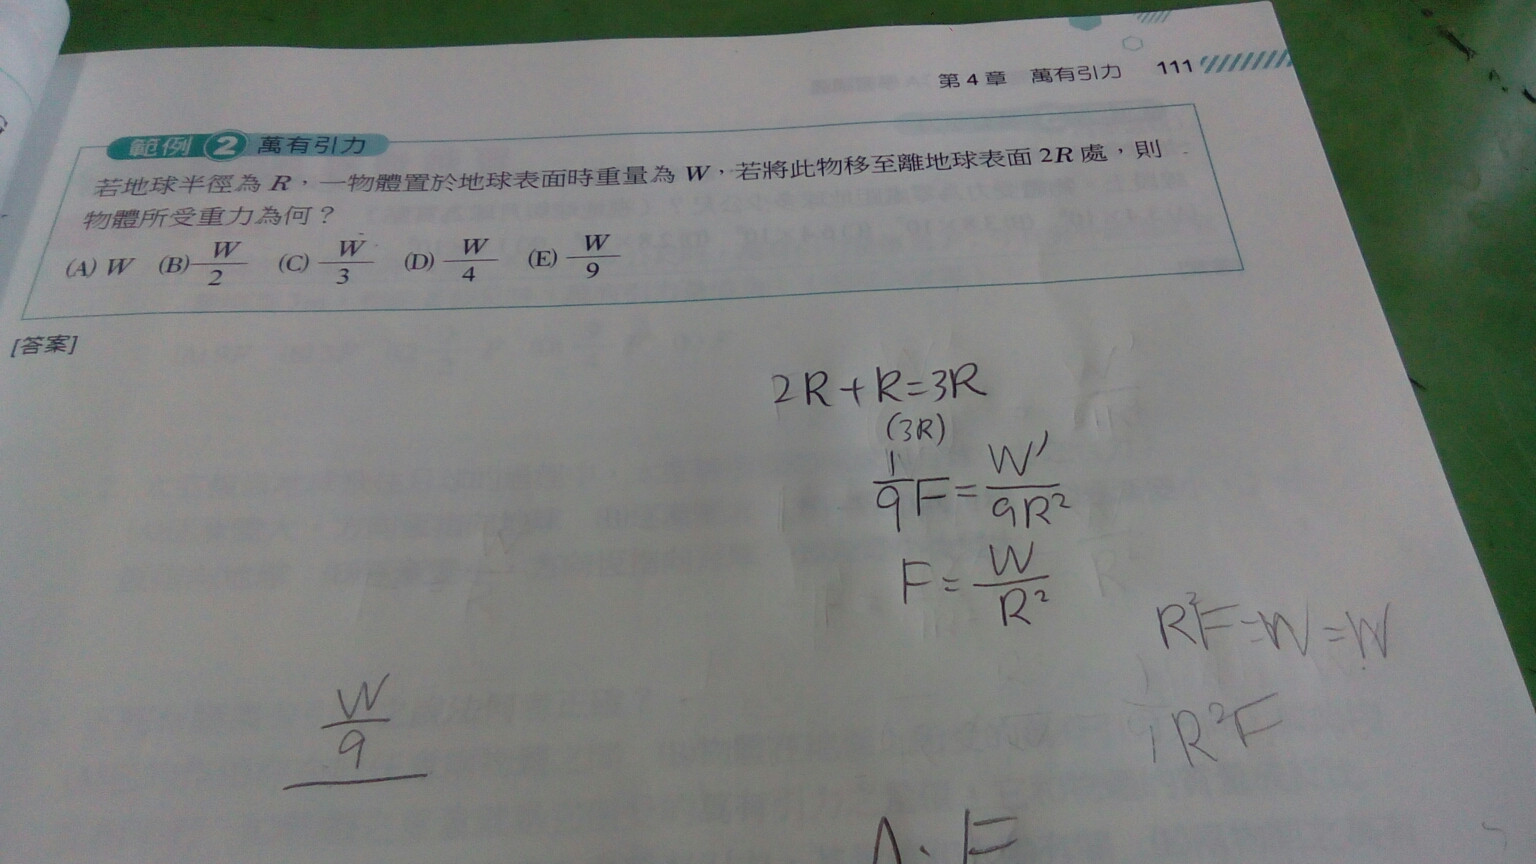 第 4 章 萬有引力 111
範例 2 萬有引力
若地球半徑為 R，一物體置於地球表面時重量為 W，若將此物移至離地球表面 2R 處，則
物體所受重力為何？
(A) W (B) W/2 (C) W/3 (D) W/4 (E) W/9
[答案]
2R + R = 3R
(3R)
1/9 F = W'/9R²
F = W/R²
R²F = W = W
R²F
W/9